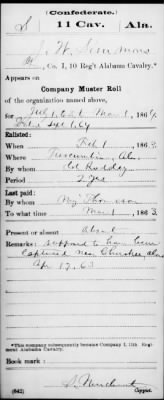 (Confederate.)
S 11 Cav. Ala.
J. W. Simmons
, Co. I, 10 Reg't Alabama Cavalry.*
Appears on
Company Muster Roll
of the organization named above,
for 1, 186
dated Sept 1, 64
Enlisted:
When Feb 1, 186
Where Tuscumbia, Ala.
By whom Col Roddey
Period 2 yrs
Last paid:
By whom Maj Thomason
To what time Mar 1, 1863.
Present or absent Absent
Remarks: supposed to have been
captured near Cherokee Ala
Apr 17, 63
*This company subsequently became Company I, 11th Regiment Alabama Cavalry.
Book mark:
(642)
Copyist.